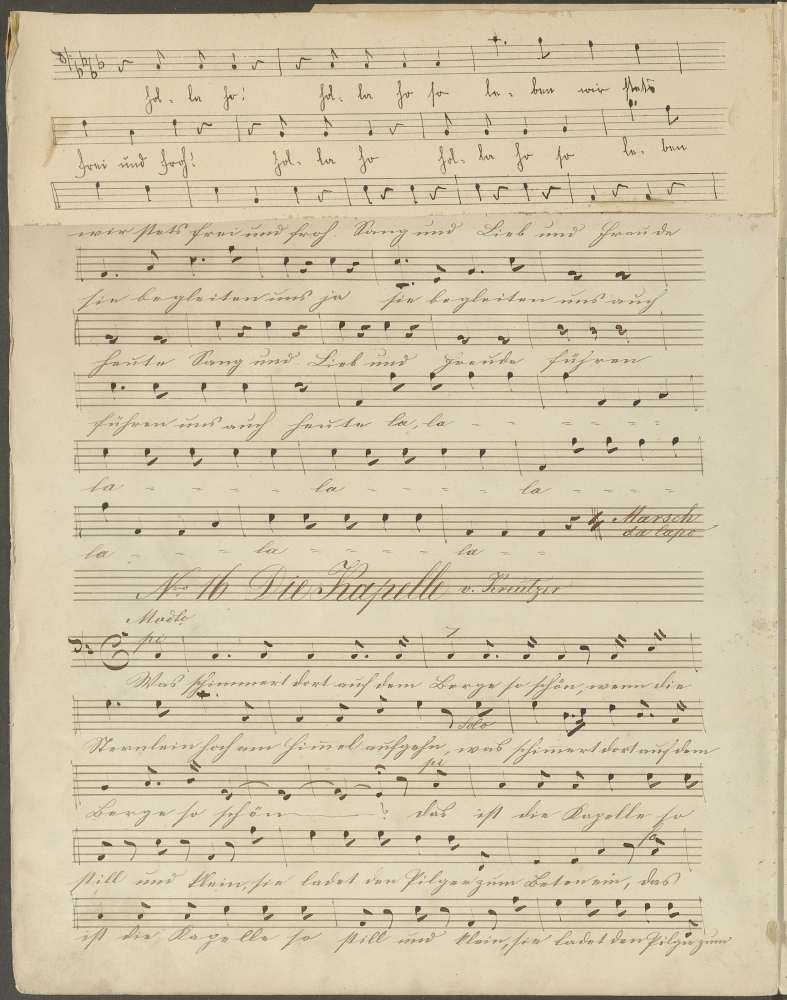 hol- la ho! hol- la ho so le- ben wir stets
frei und froh! hol- la ho hol- la ho so le- ben
wir stets frei und froh. Sang und Lieb und Freude
sie begleiten uns ja sie begleiten uns auch
heute Sang und Lieb und Freude führen
führen uns auch heute la, la - - - - -
la - - - - la - - - - la - - - -
Marsch
da capo
la - - - la - - - - la - -
Nro 16 Die Kapelle v. Kreutzer
Modto
pi
Was schimmert dort auf dem Berge so schön, wenn die
Solo
Sternlein hoch am Himel aufgehn, was schimert dort auf dem
pi
Berge so schön ? das ist die Kapelle so
still und klein, sie ladet den Pilger zum Beten ein, das
ist die Kapelle so still und klein, sie ladet den Pilger zum